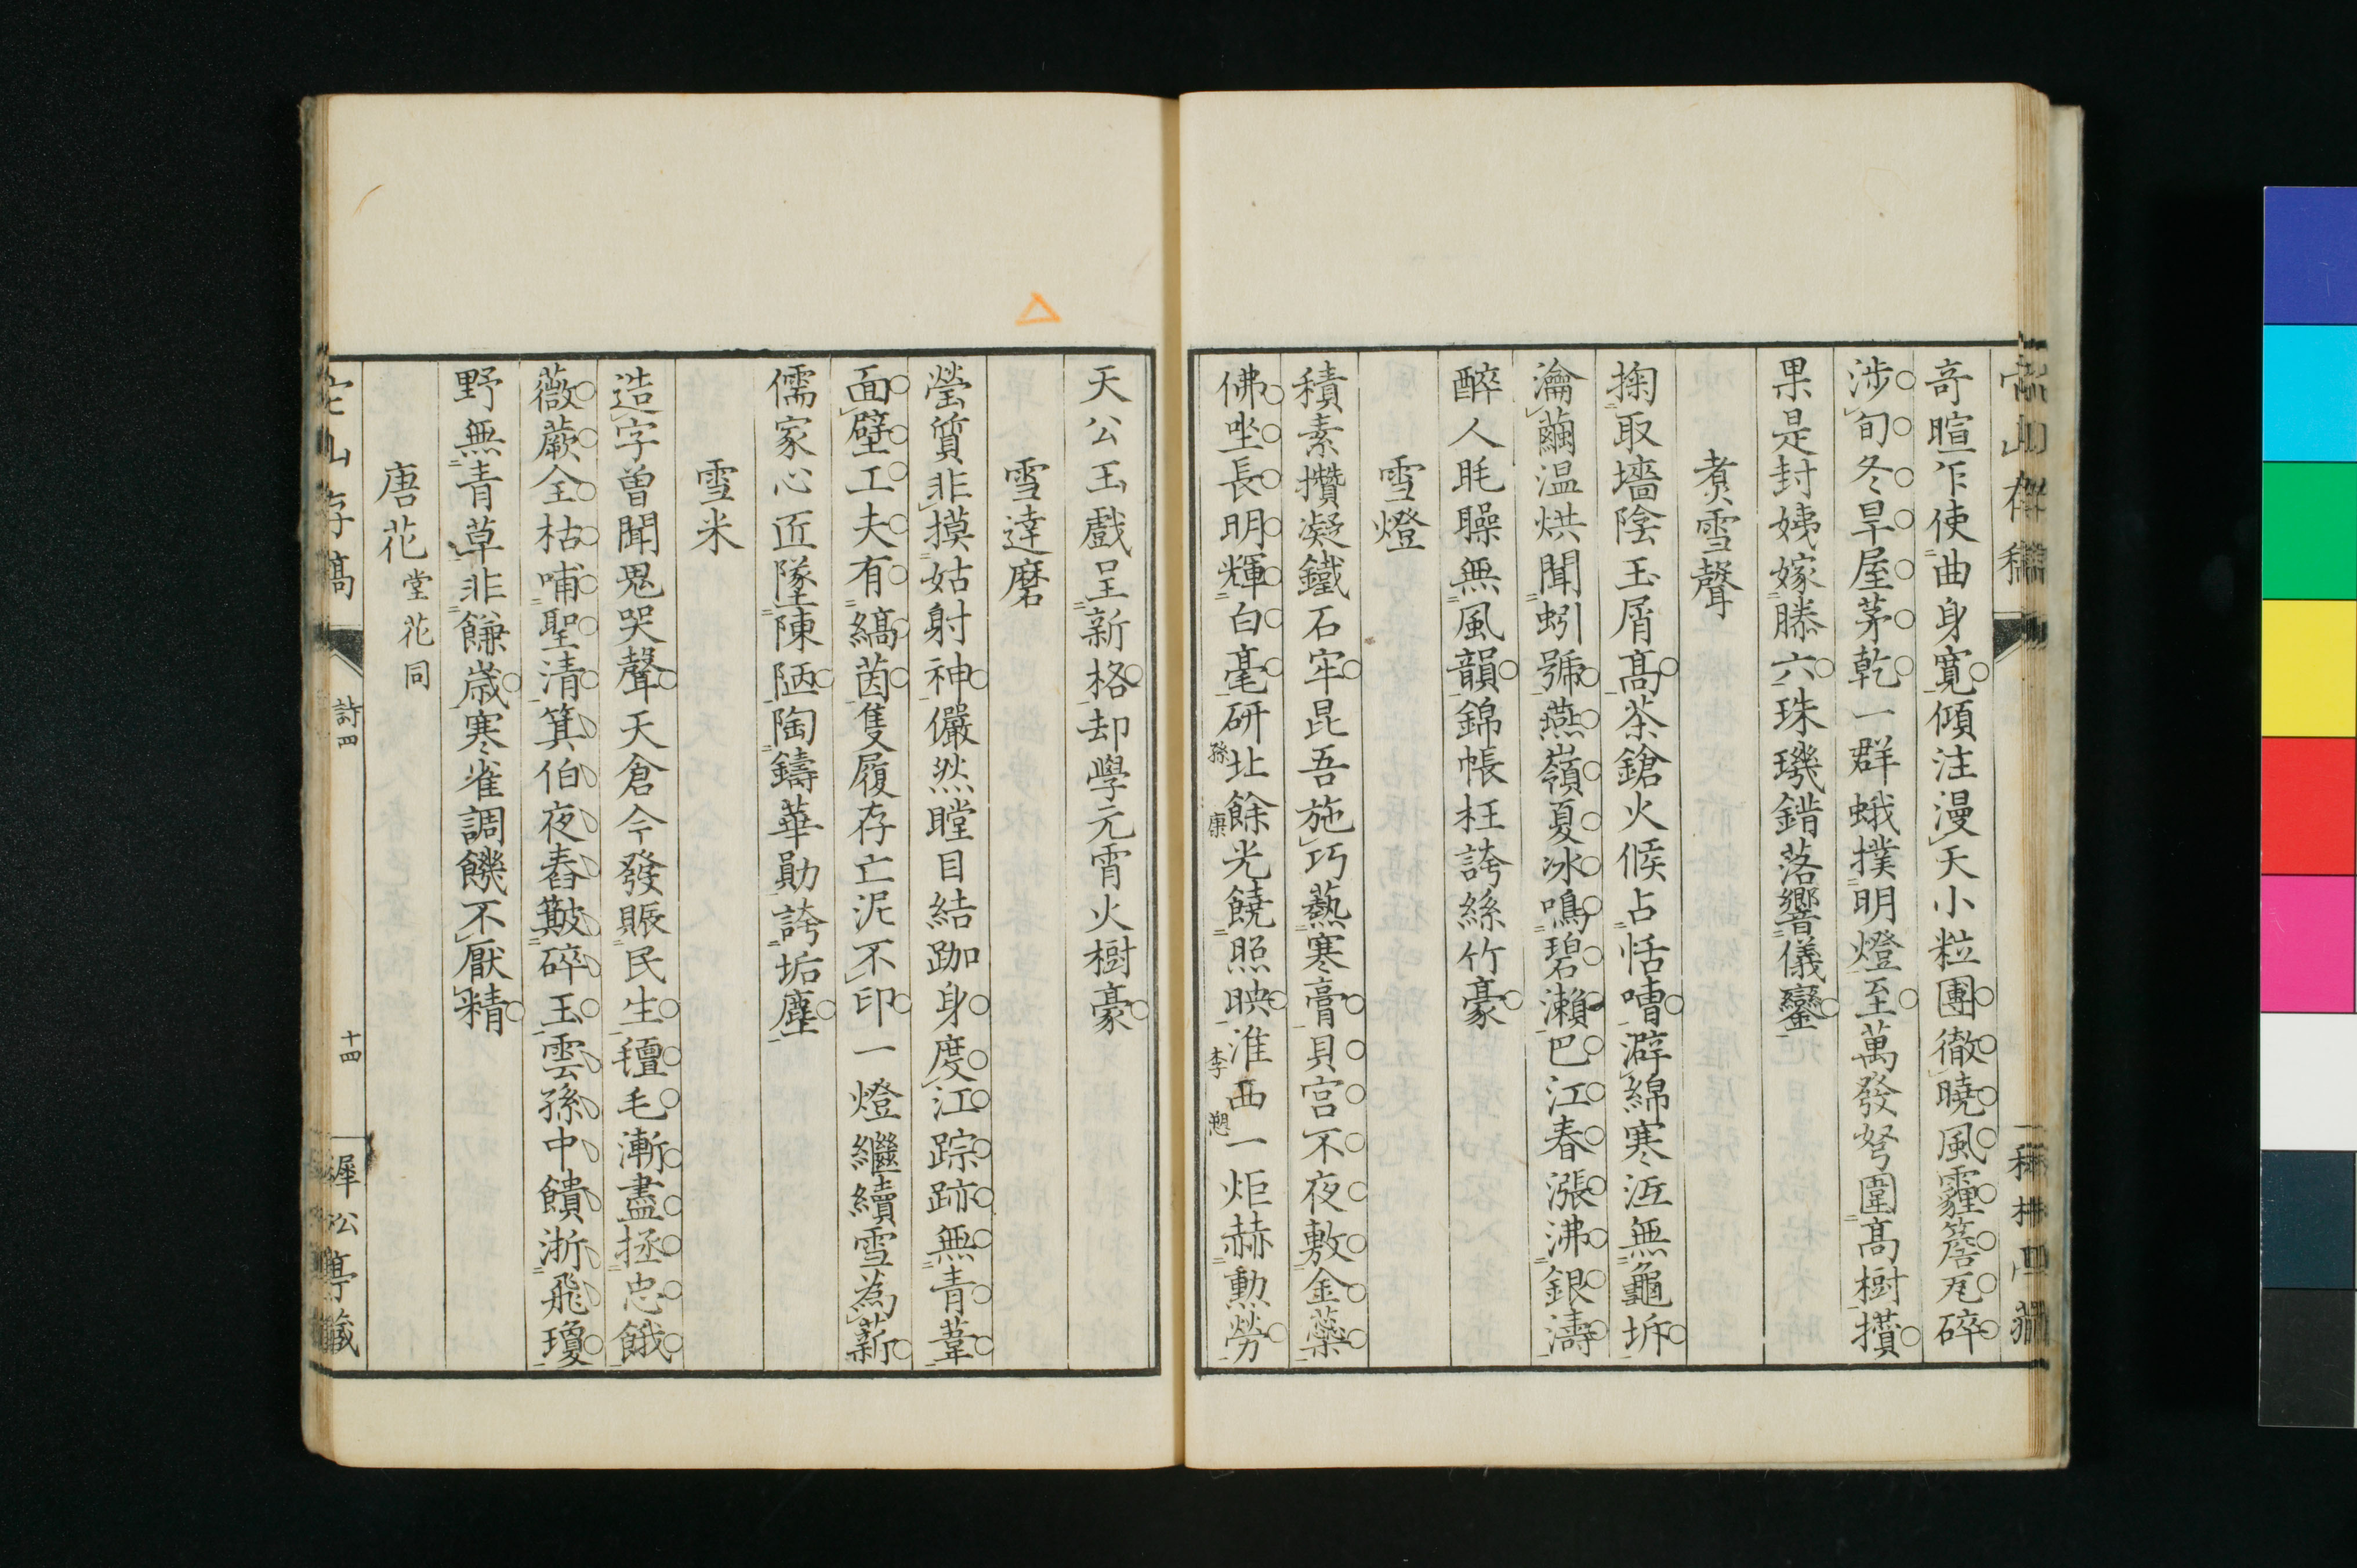 奇暄乍使曲身寬傾注漫天小粒團徹曉風霾簷瓦碎
涉旬冬旱屋茅乾一群蛾撲明燈至萬發弩圍高樹攢
果是封姨嫁滕六珠璣錯落響儀鑾
煮雪聲
掬取墻陰玉屑高茶鎗火候占恬嘈澼綿寒沍無龜坼
瀹繭温烘聞蚓號燕嶺夏冰鳴碧瀨巴江春漲沸銀濤
醉人毷氉無風韻錦帳枉誇絲竹豪
雪燈
積素攢凝鐵石牢昆吾施巧爇寒膏貝宮不夜敷金蘂
佛坐長明輝白毫研北餘光饒照映淮西一炬赫勳勞
孫康
李愬
天公玉戲呈新格却學元宵火樹豪
雪達磨
瑩質非摸姑射神儼然瞠目結跏身度江踪跡無青葦
面壁工夫有縞茵隻履存亡泥不印一燈繼續雪為薪
儒家心匠墜陳陋陶鑄華勛誇垢塵
雪米
造字曾聞鬼哭聲天倉今發賑民生氊毛漸盡拯忠餓
薇蕨全枯哺聖清箕伯夜舂簸碎玉雲孫中饋淅飛瓊
野無青草非饑歲寒雀調饑不厭精
唐花堂花同
宕山存稿
詩四
十四
犀松亭藏